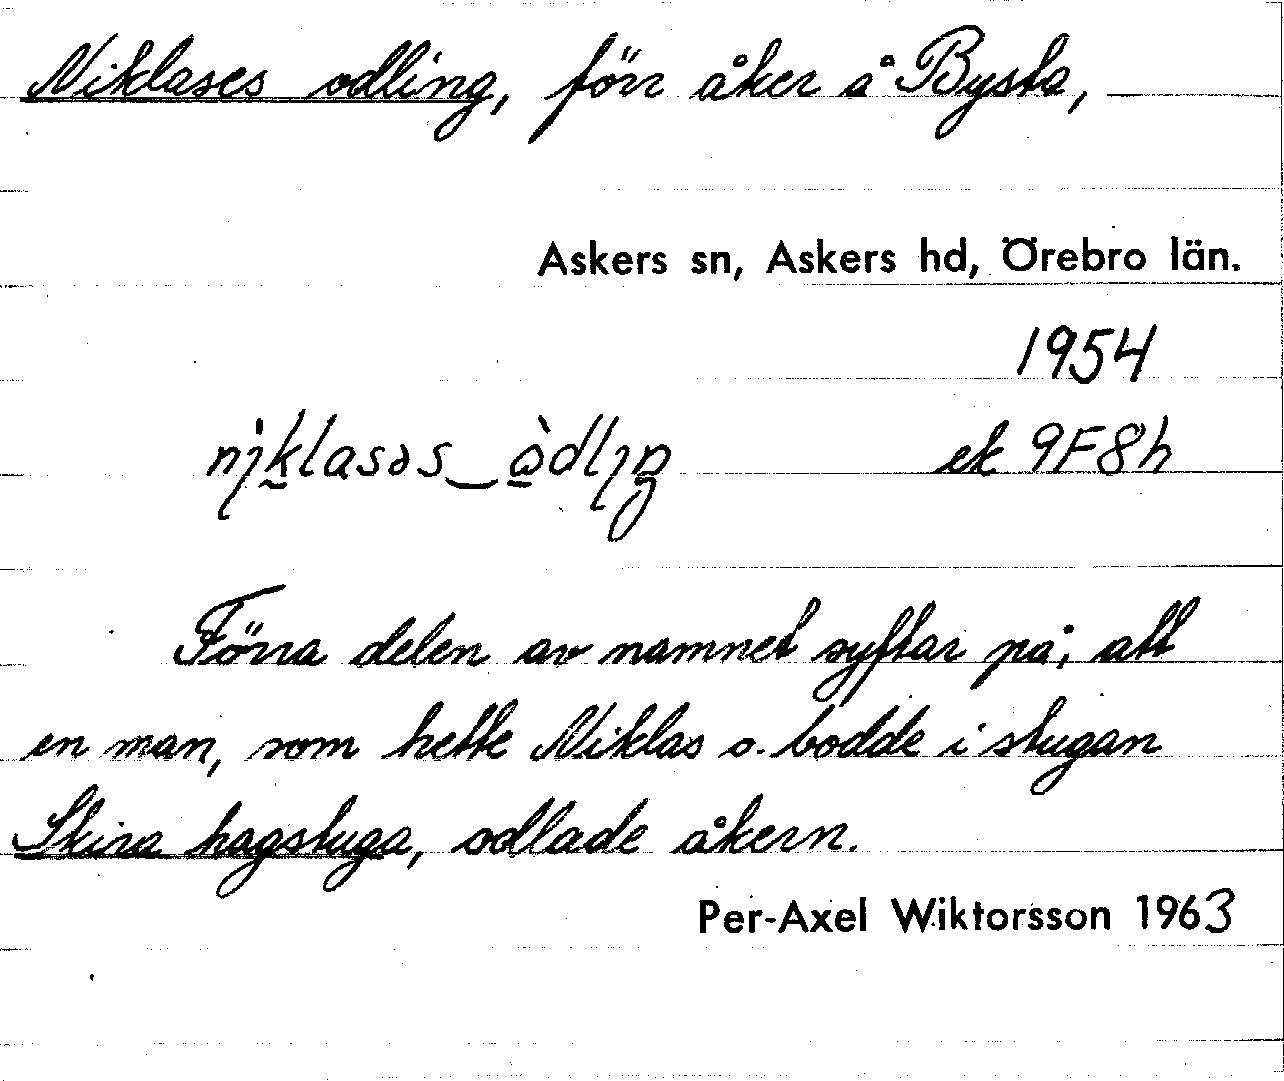 Niklases odling, förr åker å Bysta,
Askers sn, Askers hd, Örebro län.
1954
nıklasəs‿òdlıŋ ek 9F8h
Förra delen av namnet syftar på, att
en man, som hette Niklas o. bodde i stugan
Skira hagstuga, odlade åkern.
Per-Axel Wiktorsson 1963